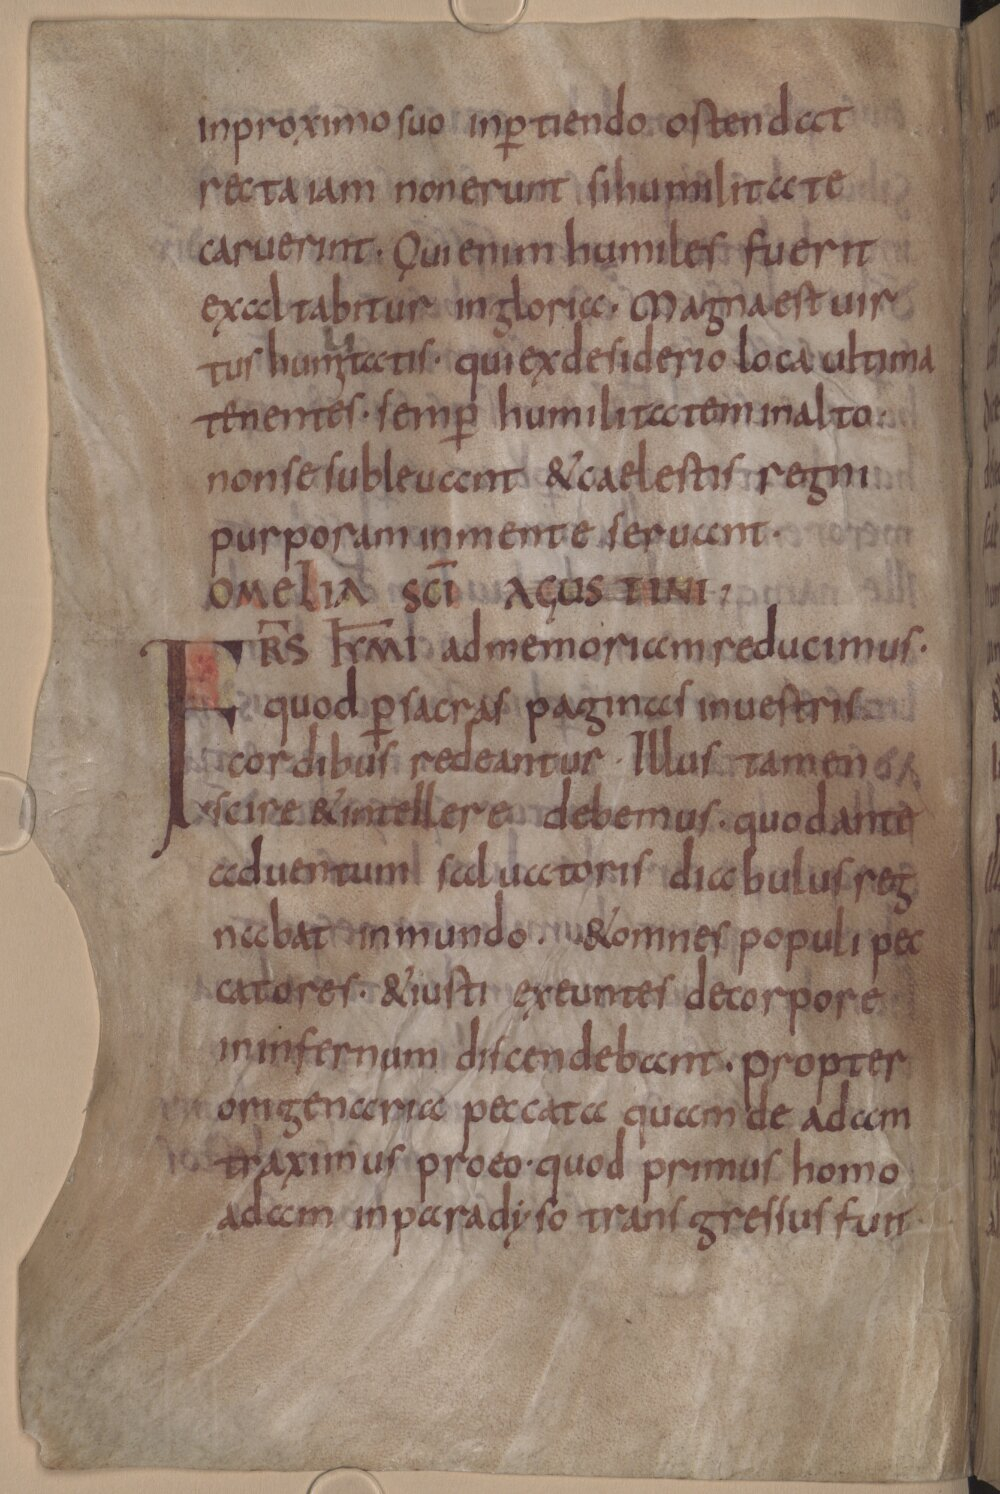 inproximo suo inp̱tiendo ostendat
recta iam nonerunt sihumilitate
caruerint. Qui enim humiles fuerit
exaltabitur ingloria. Magna est uir
tus humitatis. qui exdesiderio loca ultima
tenentes. semp̱ humilitatem inalto.
non se subleuant &caelestis regni
purporam inmente seruant.
OMELIA SC̄I AGUSTINI;
FR̄S K̄R̄MI admemoriam reducimus.
quod p̱ sacras paginas inuestris
cordibus redeantur. Illus tamen
scire &intellere debemus. quod ante
aduentum saluatoris diabulus reg
nabat inmundo. &omnes populi pec
catores. &iusti exeuntes decorpore
ininfernum discendebant. propter
origenaria peccata quam de adam
traximus proeo. quod primus homo
adam inparadyso transgressus fuit